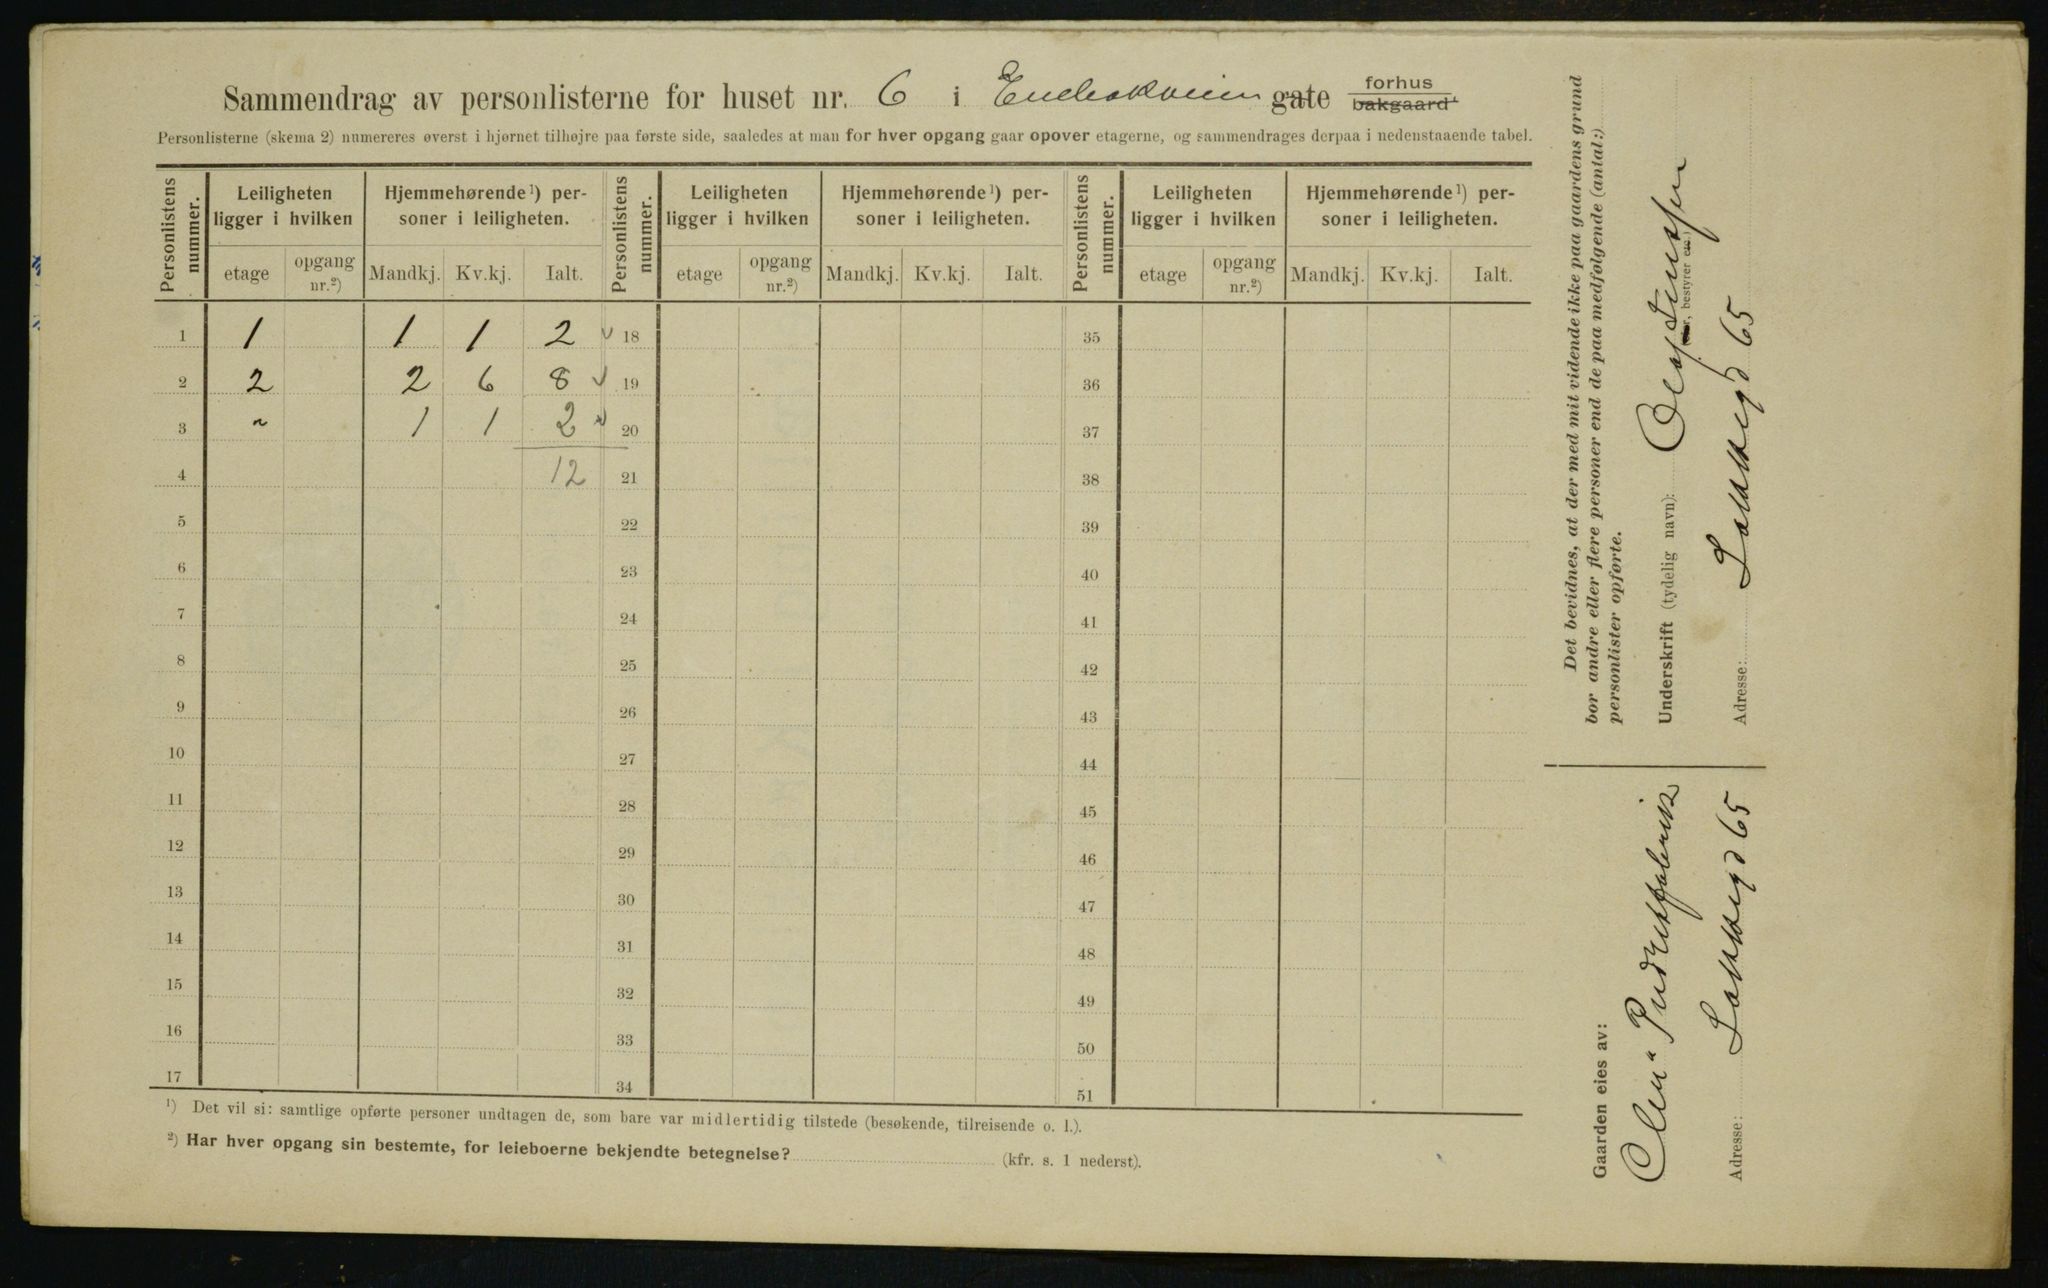 Sammendrag av personlisterne for huset nr. 6 i gate forhus bakgaard¹
Personlisterne (skema 2) numereres øverst i hjørnet tilhøjre paa første side, saaledes at man for hver opgang gaar opover etagerne, og sammendrages derpaa i nedenstaaende tabel.
Personlistens nummer. Leiligheten ligger i hvilken Hjemmehørende¹) personer i leiligheten. Personlistens nummer. Leiligheten ligger i hvilken Hjemmehørende¹) personer i leiligheten. Personlistens nummer. Leiligheten ligger i hvilken Hjemmehørende¹) personer i leiligheten.
etage opgang nr.²) Mandkj. Kv.kj. Ialt. etage opgang nr.²) Mandkj. Kv.kj. Ialt. etage opgang nr.²) Mandkj. Kv.kj. Ialt.
1 1 1 1 2 18 35
2 2 2 6 8 19 36
3 " 1 1 2 20 37
4 12 21 38
5 22 39
6 23 40
7 24 41
8 25 42
9 26 43
10 27 44
11 28 45
12 29 46
13 30 47
14 31 48
15 32 49
16 33 50
17 34 51
¹) Det vil si: samtlige opførte personer undtagen de, som bare var midlertidig tilstede (besøkende, tilreisende o. l.).
²) Har hver opgang sin bestemte, for leieboerne bekjendte betegnelse? (kfr. s. 1 nederst).
Det bevidnes, at der med mit vidende ikke paa gaardens grund
bor andre eller flere personer end de paa medfølgende (antal:)
personlister opførte.
Underskrift (tydelig navn): Olaf
bestyrer etc.)
Adresse: 65
Gaarden eies av:
Adresse: 65